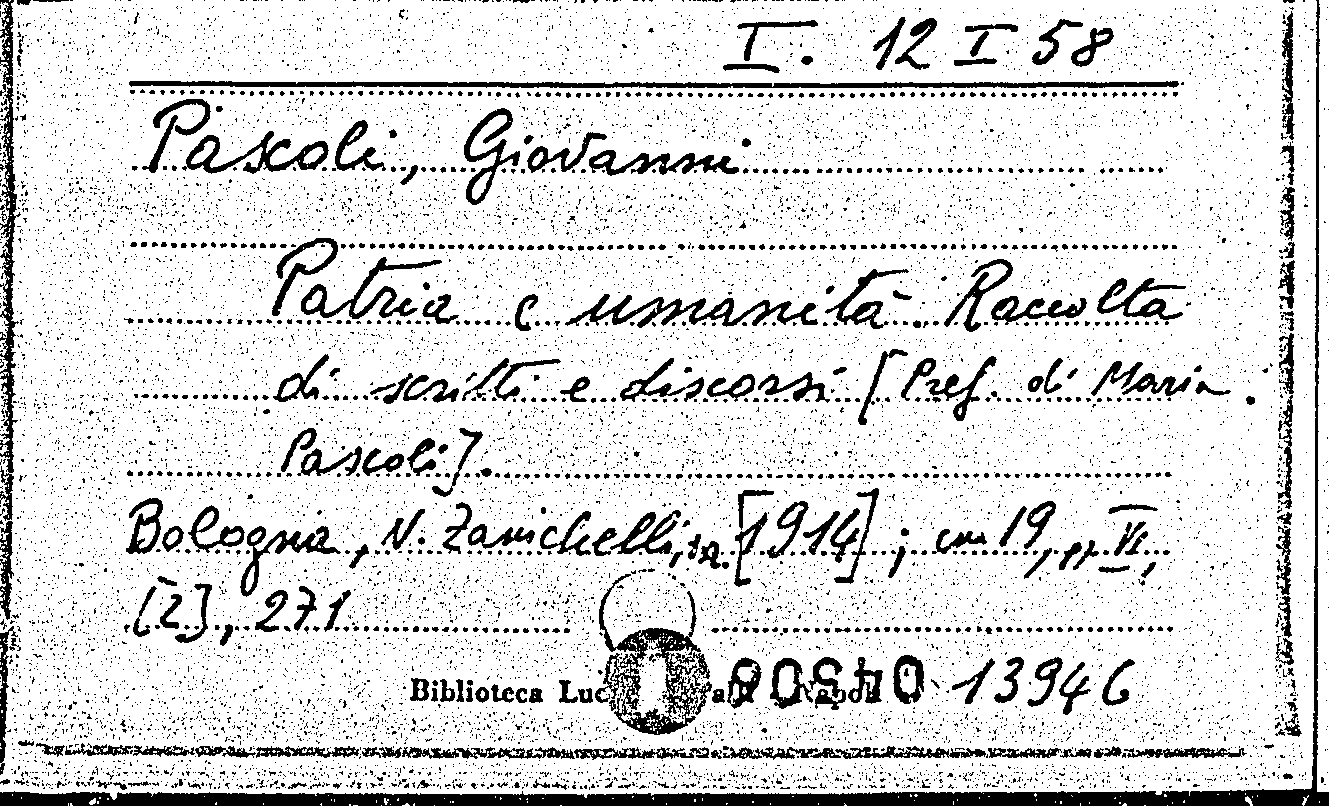 I. 12 I 58
Pascoli, Giovanni
Patria e umanità. Raccolta
di scritti e discorsi [Pref. di Maria
Pascoli].
Bologna, N. Zanichelli, s.a. [1914]; cm 19, pp. VI,
[2], 271
Biblioteca 13946